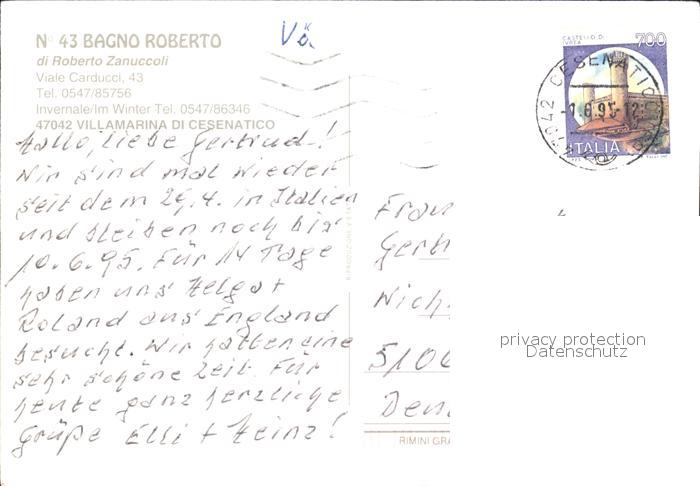 N° 43 BAGNO ROBERTO
di Roberto Zanuccoli
Viale Carducci, 43
Tel. 0547/85756
Invernale/Im Winter Tel. 0547/86346
47042 VILLAMARINA DI CESENATICO
Hallo, liebe Gertrud!
Wir sind mal wieder
seit dem 29.4. in Italien
und bleiben noch bis
10.6.95. Für 14 Tage
haben uns Helga +
Roland aus England
besucht. Wir hatten eine
sehr schöne Zeit. Für
heute ganz herzliche
Grüße Elli + Heinz!
CASTELLO DI
IVREA
700
ITALIA
47042 CESENATICO
Frau
Gert
Nich
5100
Den
RIMINI GRA
privacy protection
Datenschutz